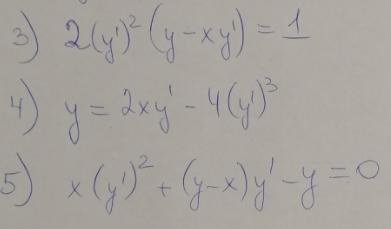 3) 2(y')² (y - xy') = 1
4) y = 2xy' - 4(y')³
5) x(y')² + (y-x)y' - y = 0